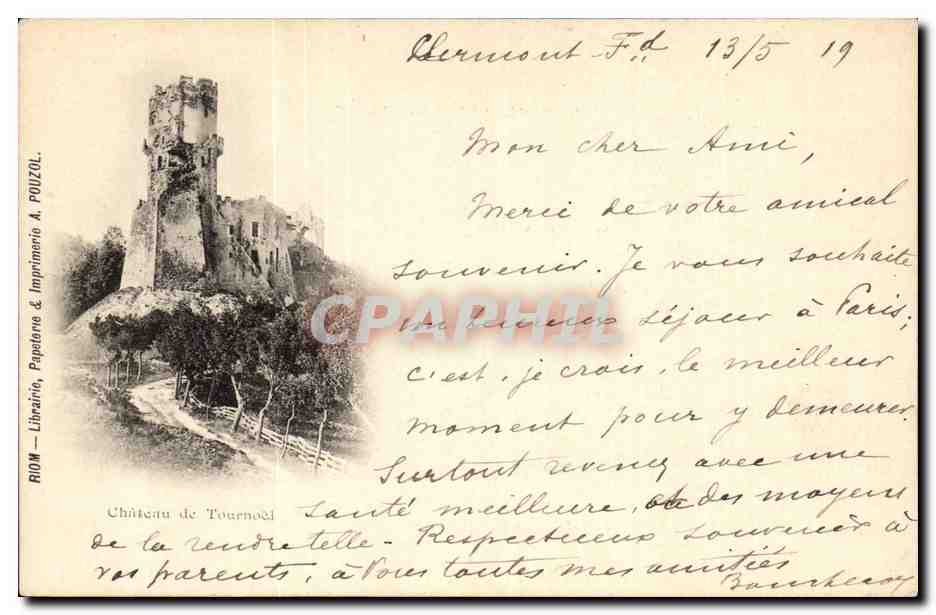 Clermont-Fd 13/5 19
Mon cher Ami,
Merci de votre amical
souvenir. Je vous souhaite
un heureux séjour à Paris;
c'est, je crois, le meilleur
moment pour y demeurer.
Surtout revenez avec une
santé meilleure, et des moyens
de la rendre telle - Respectueux souvenir à
vos parents, à Vous toutes mes amitiés
Château de Tournoël
RIOM — Librairie, Papeterie & Imprimerie A. POUZOL.
CPAPHIL